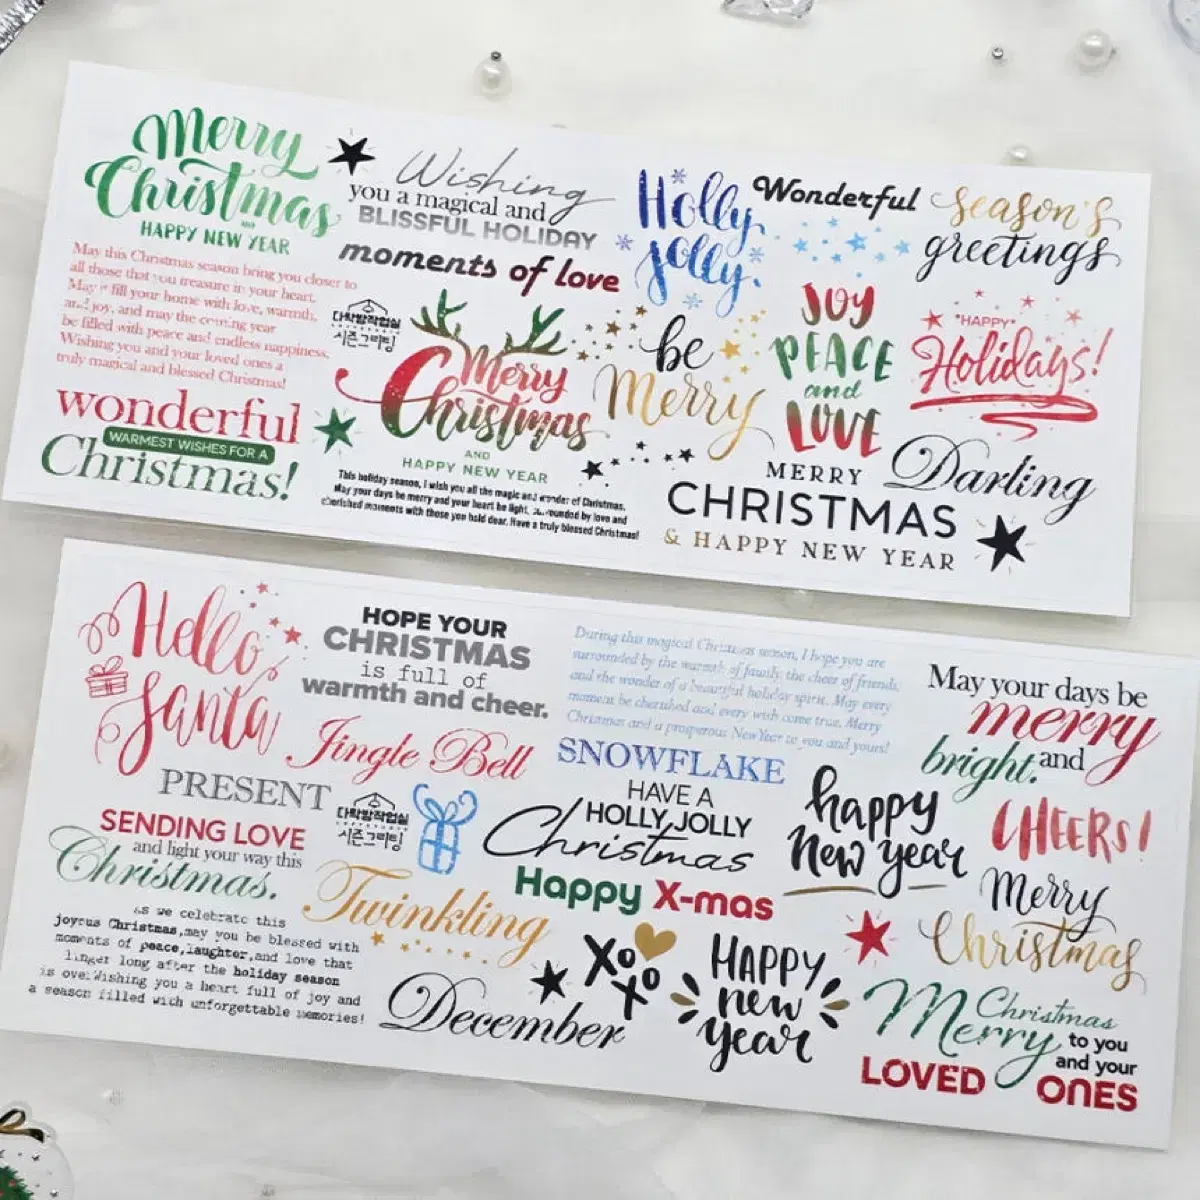 Merry
Christmas
AND
HAPPY NEW YEAR
May this Christmas season bring you closer to
all those that you treasure in your heart.
May it fill your home with love, warmth,
and joy, and may the coming year
be filled with peace and endless happiness.
Wishing you and your loved ones a
truly magical and blessed Christmas!
wonderful
WARMEST WISHES FOR A
Christmas!
Wishing
you a magical and
BLISSFUL HOLIDAY
moments of love
다락방작업실
시즌그리팅
Merry
Christmas
AND
HAPPY NEW YEAR
This holiday season, I wish you all the magic and wonder of Christmas.
May your days be merry and your heart be light, surrounded by love and
cherished moments with those you hold dear. Have a truly blessed Christmas!
Holly
jolly.
Wonderful
season's
greetings
be
Merry
JOY
PEACE
and
LOVE
"HAPPY"
Holidays!
MERRY
CHRISTMAS
& HAPPY NEW YEAR
Darling
Hello
Santa
HOPE YOUR
CHRISTMAS
is full of
warmth and cheer.
Jingle Bell
During this magical Christmas season, I hope you are
surrounded by the warmth of family, the cheer of friends,
and the wonder of a beautiful holiday spirit. May every
moment be cherished and every wish come true. Merry
Christmas and a prosperous New Year to you and yours!
May your days be
merry
and
bright.
PRESENT
다락방작업실
시즌그리팅
SNOWFLAKE
HAVE A
HOLLY JOLLY
Christmas
happy
New year
CHEERS!
SENDING LOVE
and light your way this
Christmas.
Twinkling
Happy X-mas
Merry
Christmas
As we celebrate this
joyous Christmas,may you be blessed with
moments of peace,laughter,and love that
linger long after the holiday season
is over.Wishing you a heart full of joy and
a season filled with unforgettable memories!
December
XoXo
HAPPY
new
year
Merry
Christmas
to you
and your
LOVED ONES